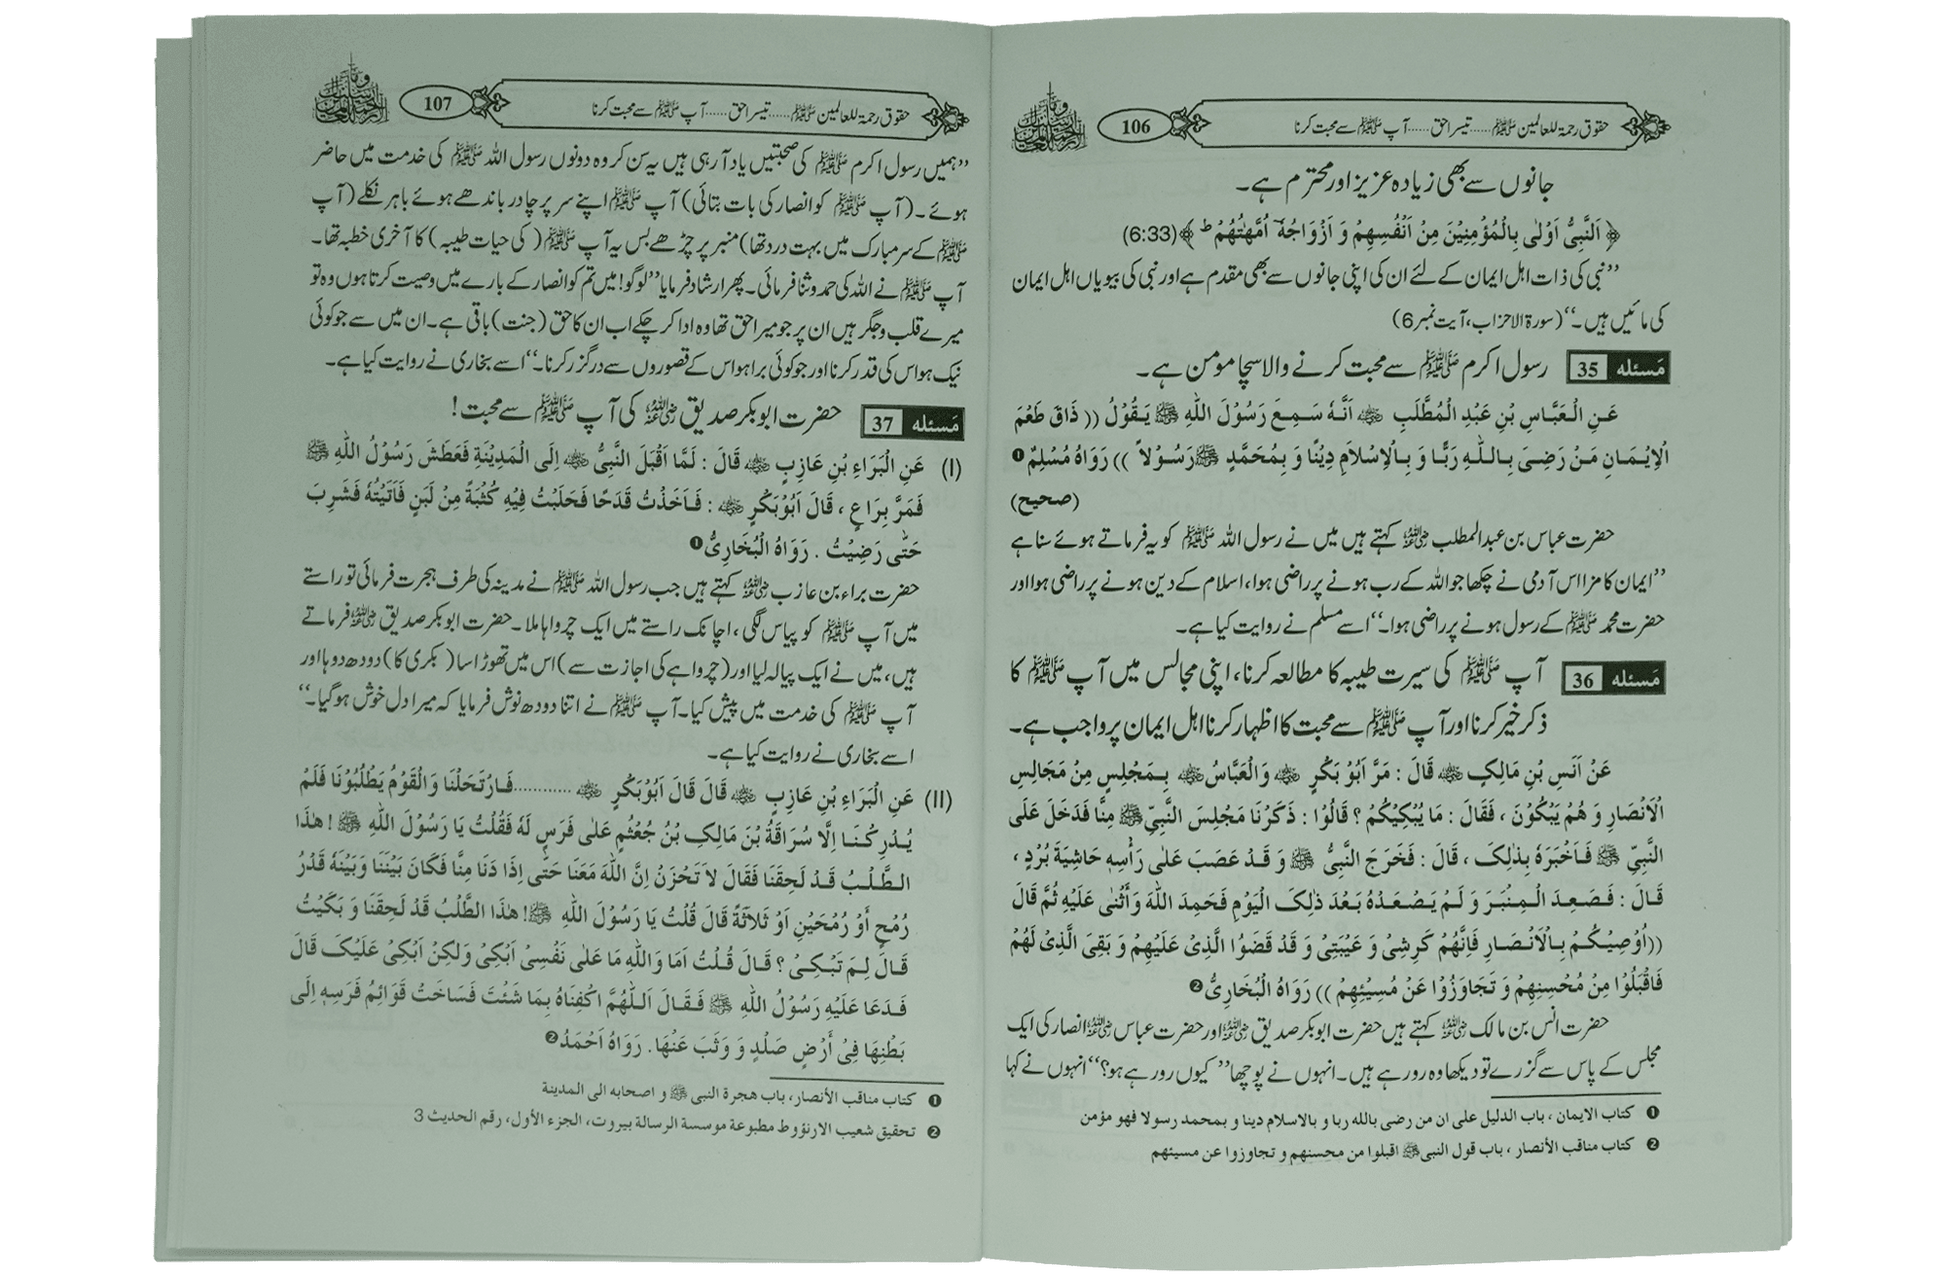 106 حقوق رحمۃ للعالمین ﷺ......تیسرا حق......آپ ﷺ سے محبت کرنا
جانوں سے بھی زیادہ عزیز اور محترم ہے۔
﴿ اَلنَّبِیُّ اَوْلٰی بِالْمُؤْمِنِیْنَ مِنْ اَنْفُسِهِمْ وَ اَزْوَاجُهٗٓ اُمَّهٰتُهُمْ ط ﴾(6:33)
’’نبی کی ذات اہل ایمان کے لئے ان کی اپنی جانوں سے بھی مقدم ہے اور نبی کی بیویاں اہل ایمان
کی مائیں ہیں۔‘‘ (سورۃ الاحزاب، آیت نمبر 6)
مَسئله 35 رسول اکرم ﷺ سے محبت کرنے والا سچا مومن ہے۔
عَنِ الْعَبَّاسِ بْنِ عَبْدِ الْمُطَّلَبِ ؓ اَنَّهٗ سَمِعَ رَسُوْلَ اللّٰهِ ﷺ یَقُوْلُ (( ذَاقَ طَعْمَ
الْاِیْمَانِ مَنْ رَضِیَ بِاللّٰهِ رَبًّا وَ بِالْاِسْلاَمِ دِیْنًا وَ بِمُحَمَّدٍ ﷺ رَسُوْلاً )) رَوَاهُ مُسْلِمٌ ❶
(صحیح)
حضرت عباس بن عبدالمطلب ؓ کہتے ہیں میں نے رسول اللہ ﷺ کو یہ فرماتے ہوئے سنا ہے
’’ایمان کا مزا اس آدمی نے چکھا جو اللہ کے رب ہونے پر راضی ہوا، اسلام کے دین ہونے پر راضی ہوا اور
حضرت محمد ﷺ کے رسول ہونے پر راضی ہوا۔‘‘ اسے مسلم نے روایت کیا ہے۔
مَسئله 36 آپ ﷺ کی سیرت طیبہ کا مطالعہ کرنا، اپنی مجالس میں آپ ﷺ کا
ذکر خیر کرنا اور آپ ﷺ سے محبت کا اظہار کرنا اہل ایمان پر واجب ہے۔
عَنْ اَنَسِ بْنِ مَالِکٍ ؓ قَالَ : مَرَّ اَبُوْ بَکْرٍ ؓ وَالْعَبَّاسُ ؓ بِمَجْلِسٍ مِنْ مَجَالِسِ
الْاَنْصَارِ وَ هُمْ یَبْکُوْنَ ، فَقَالَ : مَا یُبْکِیْکُمْ ؟ قَالُوْا : ذَکَرْنَا مَجْلِسَ النَّبِیِّ ﷺ مِنَّا فَدَخَلَ عَلَی
النَّبِیِّ ﷺ فَاَخْبَرَهٗ بِذٰلِکَ ، قَالَ : فَخَرَجَ النَّبِیُّ ﷺ وَ قَدْ عَصَبَ عَلٰی رَأْسِهٖ حَاشِیَةَ بُرْدٍ ،
قَالَ : فَصَعِدَ الْمِنْبَرَ وَ لَمْ یَصْعَدْهُ بَعْدَ ذٰلِکَ الْیَوْمِ فَحَمِدَ اللّٰهَ وَأَثْنٰی عَلَیْهِ ثُمَّ قَالَ
((اُوْصِیْکُمْ بِالْاَنْصَارِ فَاِنَّهُمْ کَرِشِیْ وَ عَیْبَتِیْ وَ قَدْ قَضَوُا الَّذِیْ عَلَیْهِمْ وَ بَقِیَ الَّذِیْ لَهُمْ
فَاقْبَلُوْا مِنْ مُحْسِنِهِمْ وَ تَجَاوَزُوْا عَنْ مُسِیْئِهِمْ )) رَوَاهُ الْبُخَارِیُّ ❷
حضرت انس بن مالک ؓ کہتے ہیں حضرت ابوبکر صدیق ؓ اور حضرت عباس ؓ انصار کی ایک
مجلس کے پاس سے گزرے تو دیکھا وہ رو رہے ہیں۔ انہوں نے پوچھا ’’کیوں رو رہے ہو؟‘‘ انہوں نے کہا
❶ کتاب الایمان ، باب الدلیل علی ان من رضی بالله ربا و بالاسلام دینا و بمحمد رسولا فهو مؤمن
❷ کتاب مناقب الأنصار ، باب قول النبی ﷺ اقبلوا من محسنهم و تجاوزوا عن مسیئهم
107 حقوق رحمۃ للعالمین ﷺ......تیسرا حق......آپ ﷺ سے محبت کرنا
’’ہمیں رسول اکرم ﷺ کی صحبتیں یاد آ رہی ہیں یہ سن کر وہ دونوں رسول اللہ ﷺ کی خدمت میں حاضر
ہوئے۔ (آپ ﷺ کو انصار کی بات بتائی) آپ ﷺ اپنے سر پر چادر باندھے ہوئے باہر نکلے (آپ
ﷺ کے سر مبارک میں بہت درد تھا) منبر پر چڑھے بس یہ آپ ﷺ (کی حیات طیبہ) کا آخری خطبہ تھا۔
آپ ﷺ نے اللہ کی حمد و ثنا فرمائی۔ پھر ارشاد فرمایا ’’لوگو! میں تم کو انصار کے بارے میں وصیت کرتا ہوں وہ تو
میرے قلب و جگر ہیں ان پر جو میرا حق تھا وہ ادا کر چکے اب ان کا حق (جنت) باقی ہے۔ ان میں سے جو کوئی
نیک ہو اس کی قدر کرنا اور جو کوئی برا ہو اس کے قصوروں سے درگزر کرنا۔‘‘ اسے بخاری نے روایت کیا ہے۔
مَسئله 37 حضرت ابوبکر صدیق ؓ کی آپ ﷺ سے محبت!
(I) عَنِ الْبَرَاءِ بْنِ عَازِبٍ ؓ قَالَ : لَمَّا اَقْبَلَ النَّبِیُّ ﷺ اِلَی الْمَدِیْنَةِ فَعَطَشَ رَسُوْلُ اللّٰهِ ﷺ
فَمَرَّ بِرَاعٍ ، قَالَ اَبُوْبَکْرٍ ؓ : فَاَخَذْتُ قَدَحًا فَحَلَبْتُ فِیْهِ کُثْبَةً مِنْ لَبَنٍ فَاَتَیْتُهٗ فَشَرِبَ
حَتّٰی رَضِیْتُ . رَوَاهُ الْبُخَارِیُّ ❶
حضرت براء بن عازب ؓ کہتے ہیں جب رسول اللہ ﷺ نے مدینہ کی طرف ہجرت فرمائی تو راستے
میں آپ ﷺ کو پیاس لگی، اچانک راستے میں ایک چرواہا ملا۔ حضرت ابوبکر صدیق ؓ فرماتے
ہیں، میں نے ایک پیالہ لیا اور (چرواہے کی اجازت سے) اس میں تھوڑا سا (بکری کا) دودھ دوہا اور
آپ ﷺ کی خدمت میں پیش کیا۔ آپ ﷺ نے اتنا دودھ نوش فرمایا کہ میرا دل خوش ہو گیا۔‘‘
اسے بخاری نے روایت کیا ہے۔
(II) عَنِ الْبَرَاءِ بْنِ عَازِبٍ ؓ قَالَ قَالَ اَبُوْبَکْرٍ ؓ ............فَارْتَحَلْنَا وَالْقَوْمُ یَطْلُبُوْنَا فَلَمْ
یُدْرِکْنَا اِلَّا سُرَاقَةُ بْنُ مَالِکِ بْنُ جُعْثُمٍ عَلٰی فَرَسٍ لَهٗ فَقُلْتُ یَا رَسُوْلَ اللّٰهِ ﷺ ! هٰذَا
الطَّلْبُ قَدْ لَحِقَنَا فَقَالَ لاَ تَحْزَنْ اِنَّ اللّٰهَ مَعَنَا حَتّٰی اِذَا دَنَا مِنَّا فَکَانَ بَیْنَنَا وَبَیْنَهٗ قَدْرُ
رُمْحٍ أَوْ رُمْحَیْنِ اَوْ ثَلاَثَةً قَالَ قُلْتُ یَا رَسُوْلَ اللّٰهِ ﷺ ! هٰذَا الطَّلْبُ قَدْ لَحِقَنَا وَ بَکَیْتُ
قَالَ لِمَ تَبْکِیْ ؟ قَالَ قُلْتُ اَمَا وَاللّٰهِ مَا عَلٰی نَفْسِیْ اَبْکِیْ وَلٰکِنْ اَبْکِیْ عَلَیْکَ قَالَ
فَدَعَا عَلَیْهِ رَسُوْلُ اللّٰهِ ﷺ فَقَالَ اَللّٰهُمَّ اکْفِنَاهُ بِمَا شَئْتَ فَسَاخَتْ قَوَائِمُ فَرَسِهٖ اِلَی
بَطْنِهَا فِیْ أَرْضٍ صَلْدٍ وَ وَثَبَ عَنْهَا. رَوَاهُ اَحْمَدُ ❷
❶ کتاب مناقب الأنصار، باب هجرة النبی ﷺ و اصحابه الی المدینة
❷ تحقیق شعیب الارنؤوط مطبوعة موسسة الرسالة بیروت، الجزء الأول، رقم الحدیث 3